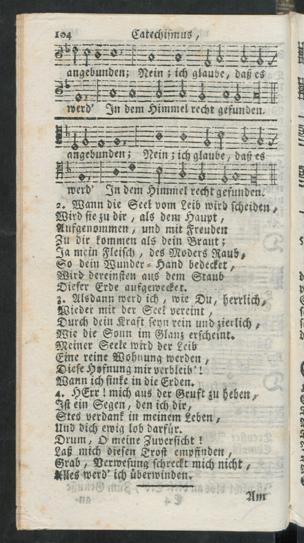 104 Catechismus,
angebunden; Nein; ich glaube, daß es
werd' In dem Himmel recht gefunden.
angebunden; Nein; ich glaube, daß es
werd' In dem Himmel recht gefunden.
2. Wann die Seel vom Leib wird scheiden,
Wird sie zu dir, als dem Haupt,
Aufgenommen, und mit Freuden
Zu dir kommen als dein Braut;
Ja mein Fleisch, des Moders Raub,
So dein Wunder-Hand bedecket,
Wird dereinsten aus dem Staub
Dieser Erde aufgewecket.
3. Alsdann werd ich, wie Du, herrlich,
Wieder mit der Seel vereint,
Durch dein Kraft seyn rein und zierlich,
Wie die Sonn im Glanz erscheint.
Meiner Seele wird der Leib
Eine reine Wohnung werden,
Diese Hofnung mir verbleib'!
Wann ich sinke in die Erden.
4. HErr! mich aus der Gruft zu heben,
Ist ein Segen, den ich dir,
Stes verdank in meinem Leben,
Und dich ewig lob darfür.
Drum, O meine Zuversicht!
Laß mich diesen Trost empfinden,
Grab, Verwesung schreckt mich nicht,
Alles werd' ich überwinden.
Am